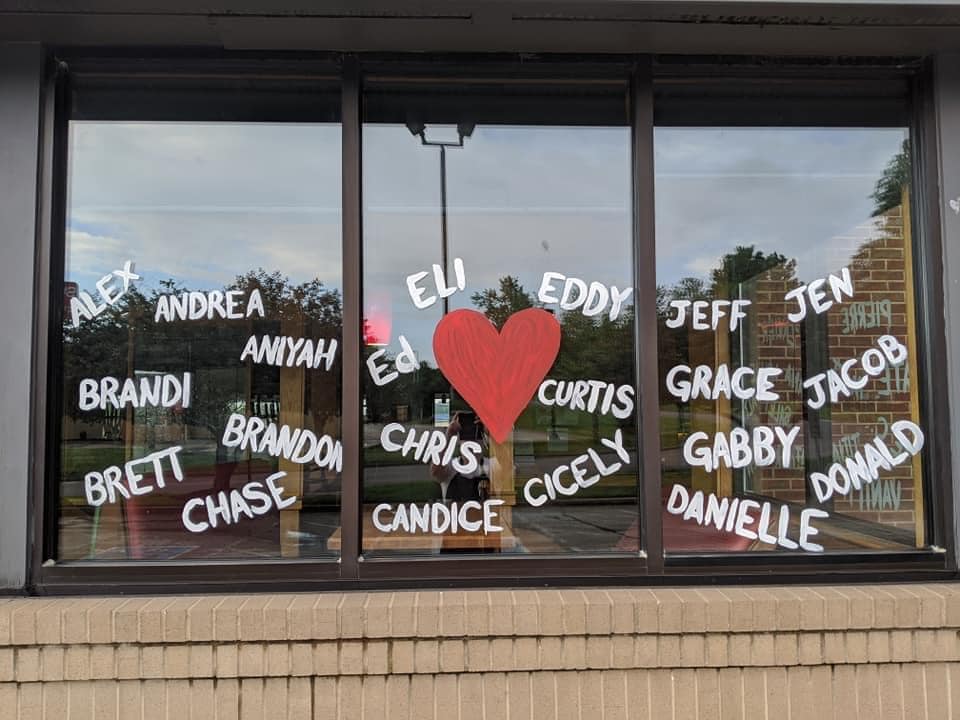 ALEX
ANDREA
ANIYAH
BRANDI
BRANDON
BRETT
CHASE
ELI
EDDY
Ed
CURTIS
CHRIS
CICELY
CANDICE
JEFF
JEN
GRACE
JACOB
GABBY
DONALD
DANIELLE
PIERRE